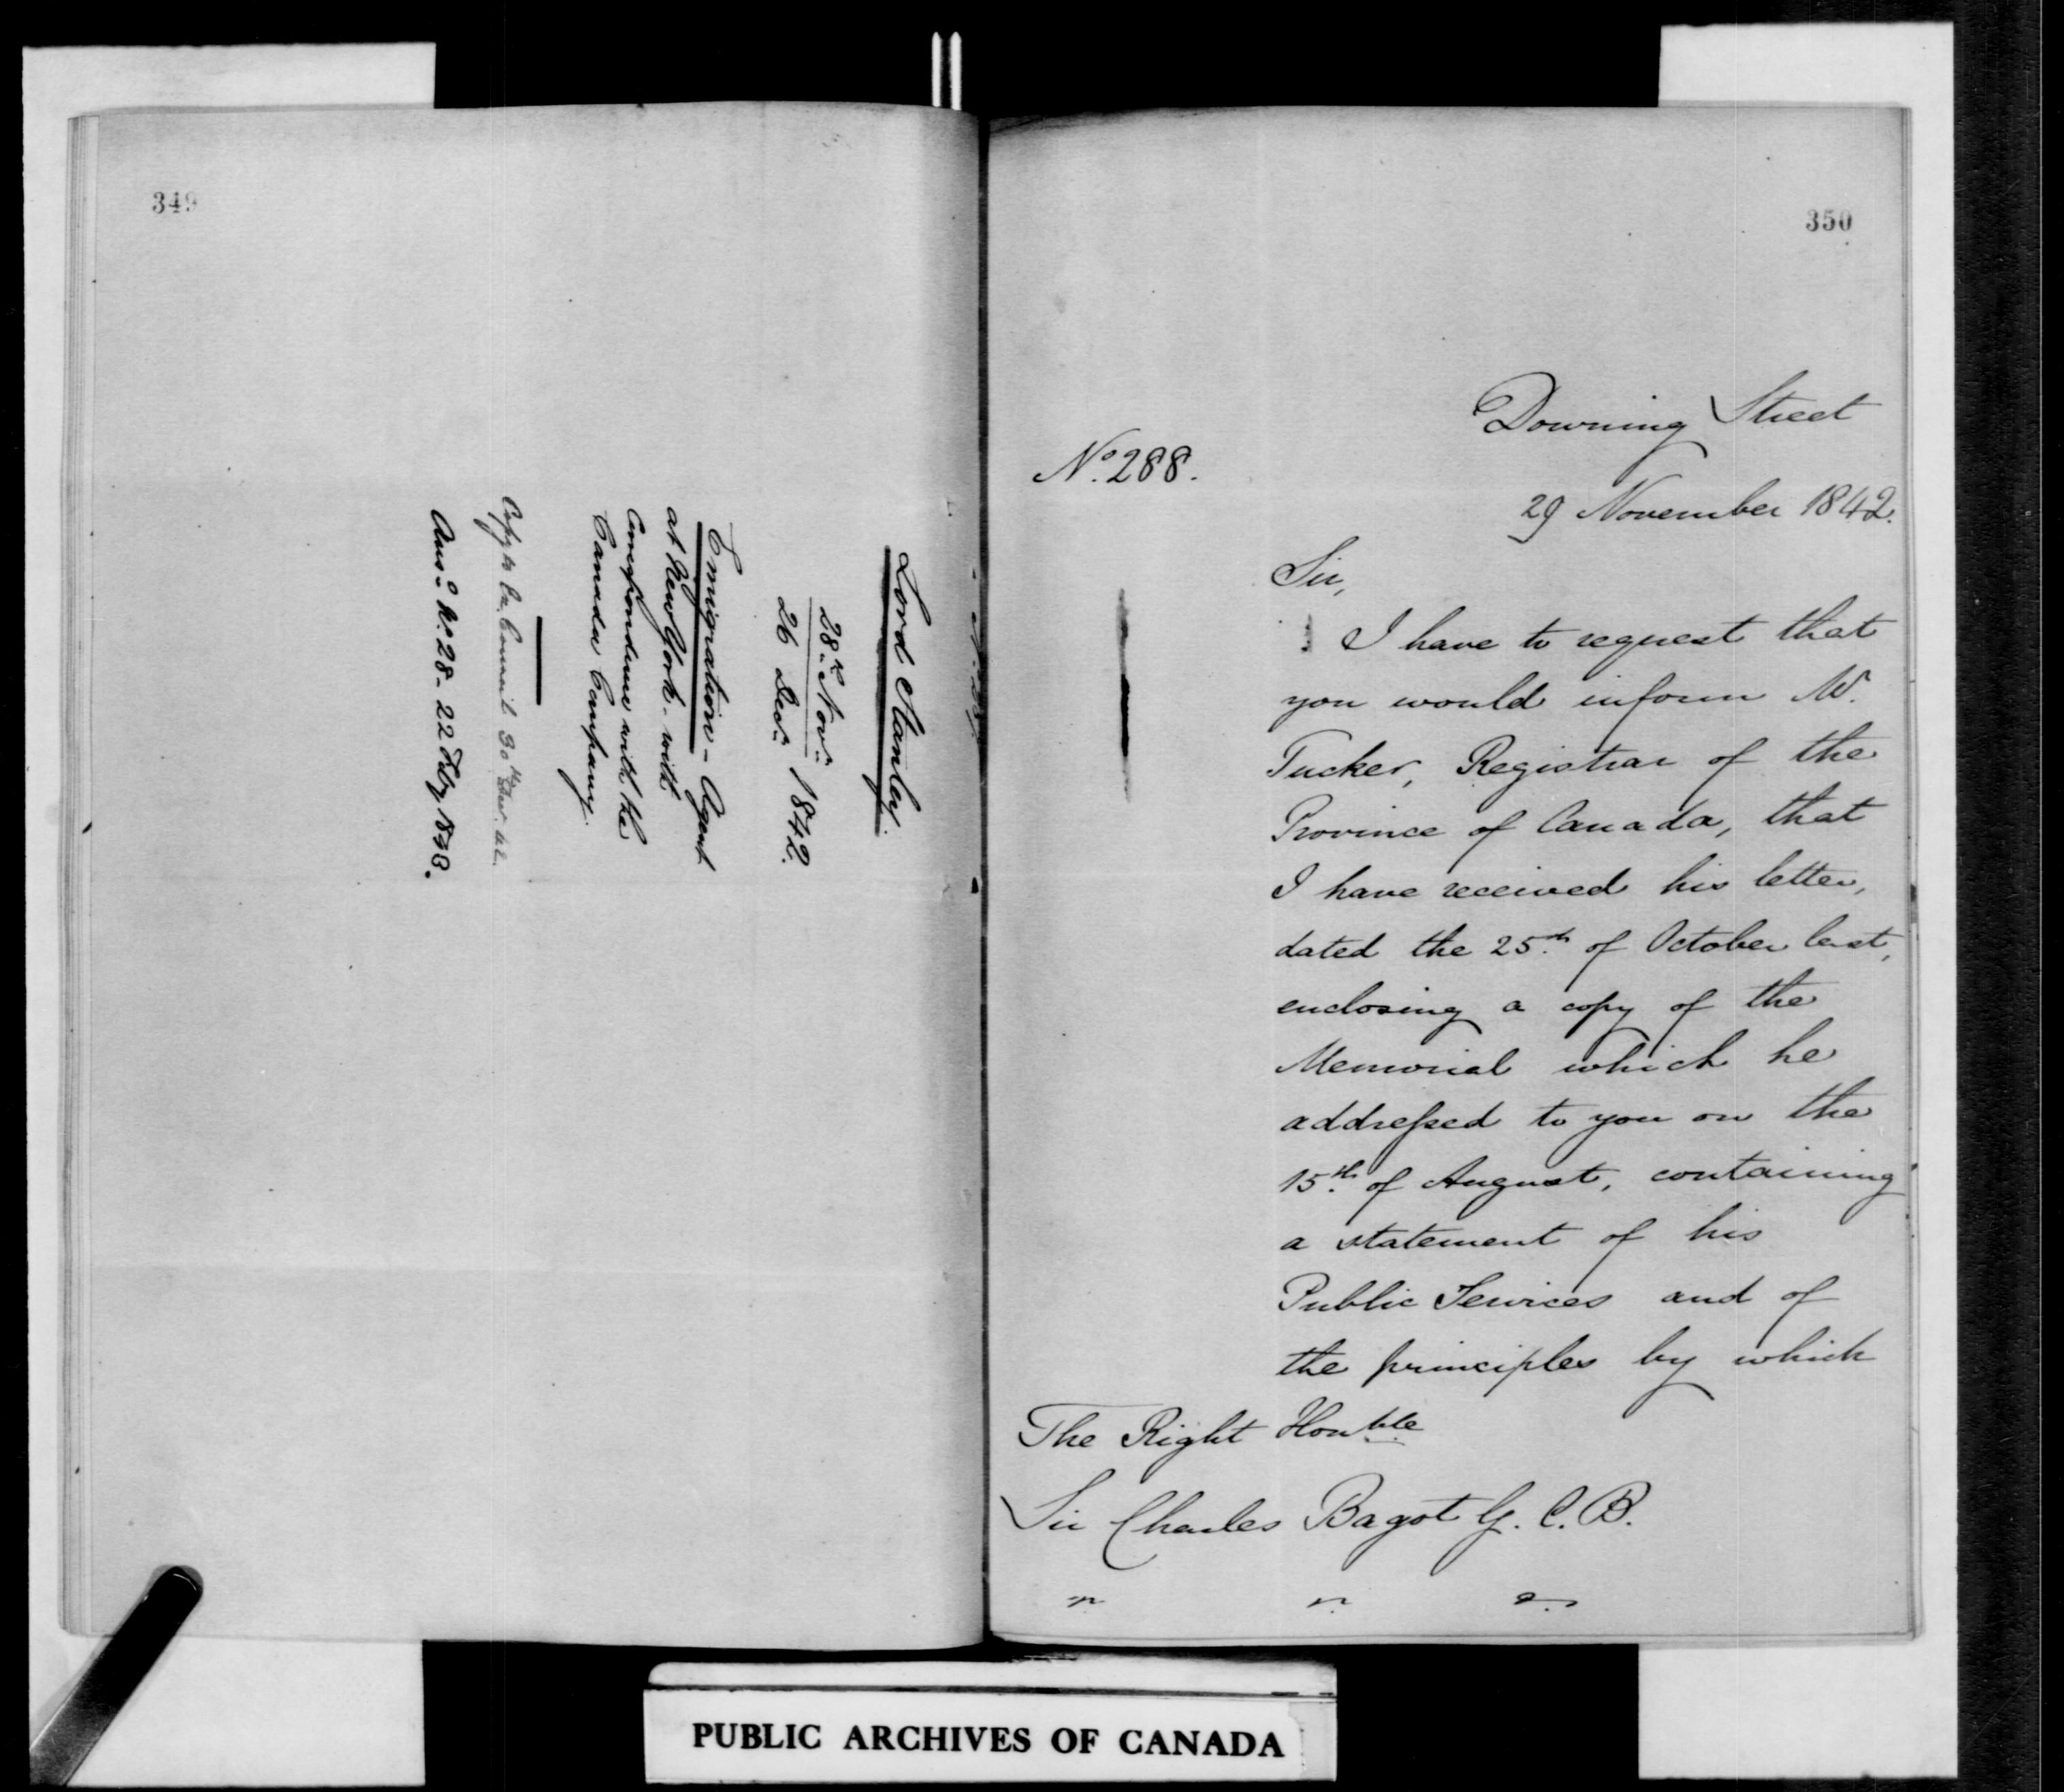 349
Lord Stanley.
28th Novr
26 Decr 1842.
Emigration - Agent
at New York - with
Correspondence with the
Canada Company.
Copy to Ex. Council 30th Decr. 42.
Ansd No. 28 - 22 Feby 1843.
350
Downing Street
No. 288.
29 November 1842.
Sir,
I have to request that
you would inform Mr.
Tucker, Registrar of the
Province of Canada, that
I have received his letter,
dated the 25th of October last,
enclosing a copy of the
Memorial which he
addressed to you on the
15th of August, containing
a statement of his
Public Services and of
the principles by which
The Right Honble
Sir Charles Bagot G. C. B.
PUBLIC ARCHIVES OF CANADA